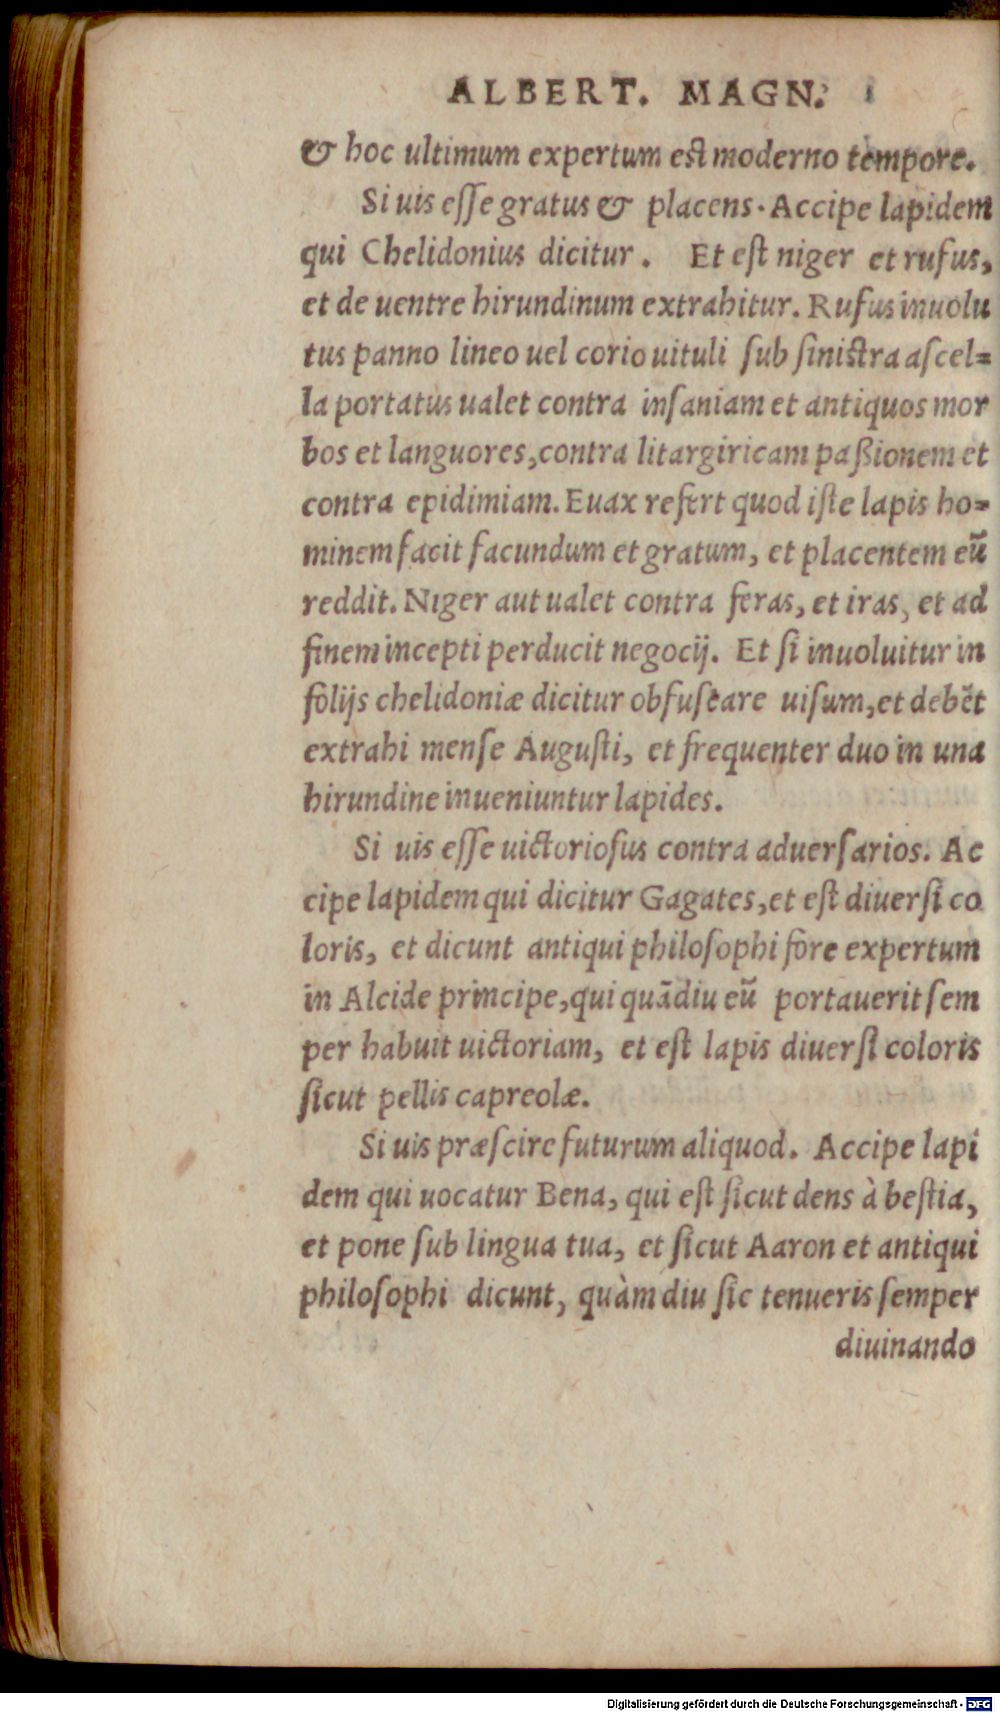 ALBERT. MAGN.
& hoc ultimum expertum est moderno tempore.
Si uis eſſe gratus & placens. Accipe lapidem
qui Chelidonius dicitur. Et eſt niger et rufus,
et de uentre hirundinum extrahitur. Rufus inuolu
tus panno lineo uel corio uituli ſub ſiniſtra aſcel=
la portatus ualet contra inſaniam et antiquos mor
bos et languores, contra litargiricam paßionem et
contra epidimiam. Euax refert quod iſte lapis ho=
minem facit facundum et gratum, et placentem eũ
reddit. Niger aut ualet contra feras, et iras, et ad
finem incepti perducit negocij. Et ſi inuoluitur in
folijs chelidoniæ dicitur obfuſcare uiſum, et debẽt
extrahi menſe Auguſti, et frequenter duo in una
hirundine inueniuntur lapides.
Si uis eſſe uictorioſus contra aduerſarios. Ac
cipe lapidem qui dicitur Gagates, et eſt diuerſi co
loris, et dicunt antiqui philoſophi fore expertum
in Alcide principe, qui quãdiu eũ portauerit ſem
per habuit uictoriam, et eſt lapis diuerſi coloris
ſicut pellis capreolæ.
Si uis præſcire futurum aliquod. Accipe lapi
dem qui uocatur Bena, qui eſt ſicut dens à beſtia,
et pone ſub lingua tua, et ſicut Aaron et antiqui
philoſophi dicunt, quàm diu ſic tenueris ſemper
diuinando
Digitalisierung gefördert durch die Deutsche Forschungsgemeinschaft - DFG